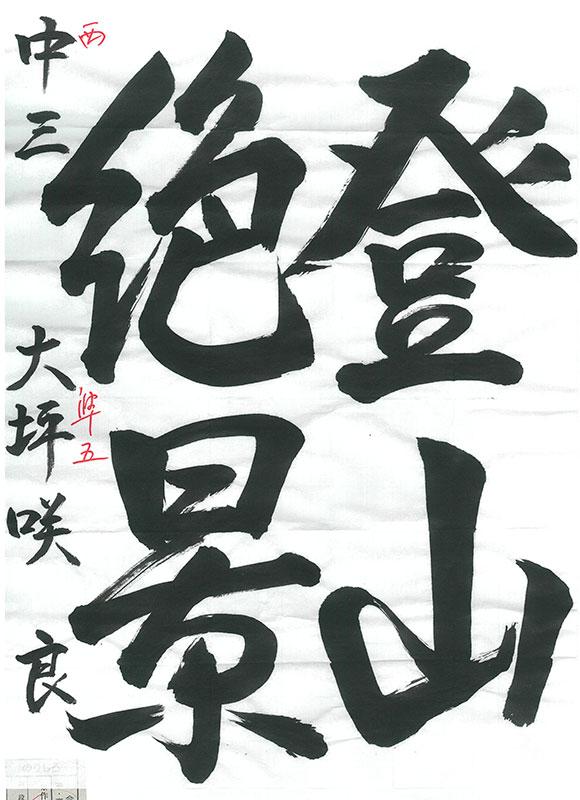 登山
絶景
西
準五
中三 大坪咲良